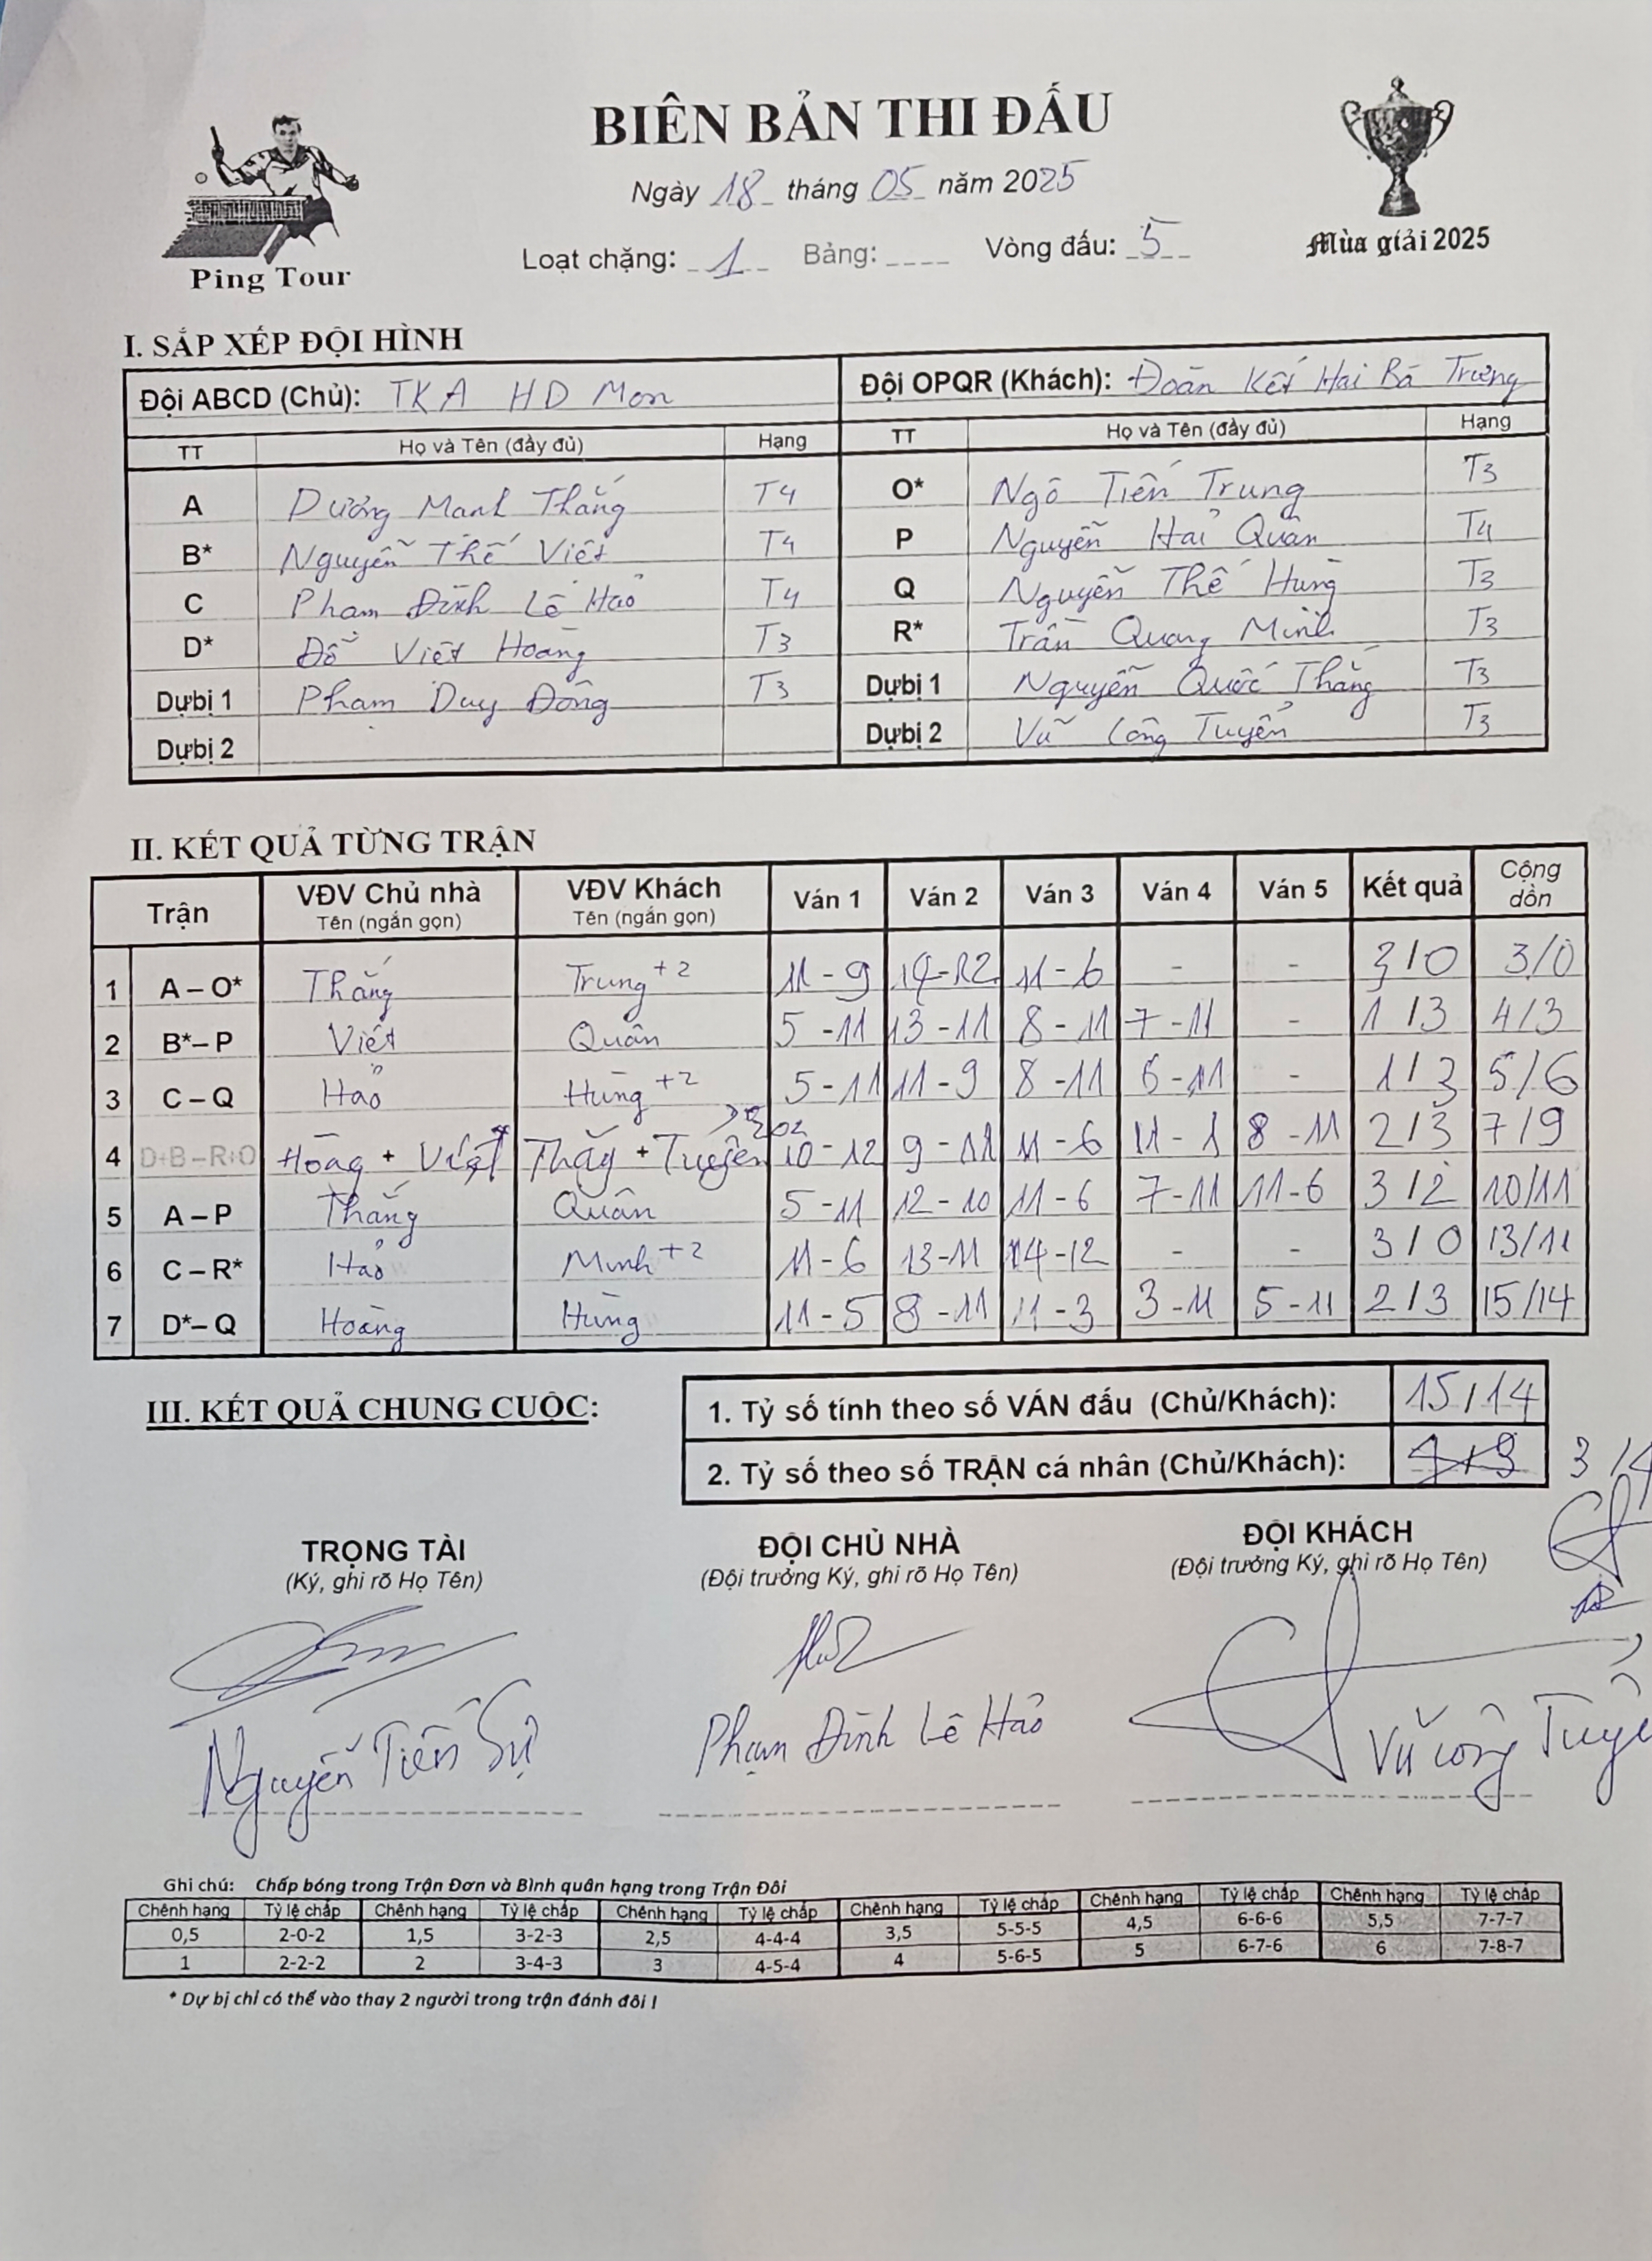 BIÊN BẢN THI ĐẤU
Ngày 18 tháng 05 năm 2025
Loạt chặng: 1 Bảng: ____ Vòng đấu: 5
Ping Tour
Mùa giải 2025
I. SẮP XẾP ĐỘI HÌNH
Đội ABCD (Chủ): TKA HD Mon Đội OPQR (Khách): Đoàn Kết Hai Bà Trưng
TT Họ và Tên (đầy đủ) Hạng TT Họ và Tên (đầy đủ) Hạng
A Dương Manh Thắng T4 O* Ngô Tiến Trung T3
B* Nguyễn Thế Việt T4 P Nguyễn Hải Quân T4
C Pham Đình Lê Hảo T4 Q Nguyễn Thế Hùng T3
D* Đỗ Việt Hoàng T3 R* Trần Quang Minh T3
Dựbị 1 Phạm Duy Đông T3 Dựbị 1 Nguyễn Quốc Thắng T3
Dựbị 2 Dựbị 2 Vũ Công Tuyển T3
II. KẾT QUẢ TỪNG TRẬN
Trận VĐV Chủ nhà VĐV Khách Ván 1 Ván 2 Ván 3 Ván 4 Ván 5 Kết quả Cộng dồn
Tên (ngắn gọn) Tên (ngắn gọn)
1 A – O* Thắng Trung +2 11 - 9 14-12 11 - 6 - - 3/0 3/0
2 B*– P Việt Quân 5 - 11 13 - 11 8 - 11 7 - 11 - 1/3 4/3
3 C – Q Hảo Hùng +2 5 - 11 11 - 9 8 - 11 6 - 11 - 1/3 5/6
4 D+B – R+O Hoàng + Việt Thắng + Tuyển 10 - 12 9 - 11 11 - 6 11 - 8 - 11 2/3 7/9
5 A – P Thắng Quân 5 - 11 12 - 10 11 - 6 7 - 11 11 - 6 3/2 10/11
6 C – R* Hảo Minh +2 11 - 6 13 - 11 14 - 12 - - 3/0 13/11
7 D*– Q Hoàng Hùng 11 - 5 8 - 11 11 - 3 3 - 11 5 - 11 2/3 15/14
III. KẾT QUẢ CHUNG CUỘC:
1. Tỷ số tính theo số VÁN đấu (Chủ/Khách): 15/14
2. Tỷ số theo số TRẬN cá nhân (Chủ/Khách): 3/4
TRỌNG TÀI ĐỘI CHỦ NHÀ ĐỘI KHÁCH
(Ký, ghi rõ Họ Tên) (Đội trưởng Ký, ghi rõ Họ Tên) (Đội trưởng Ký, ghi rõ Họ Tên)
Nguyễn Tiến Sự Phạm Đình Lê Hảo Vũ Công
Ghi chú: Chấp bóng trong Trận Đơn và Bình quân hạng trong Trận Đôi
Chênh hạng Tỷ lệ chấp Chênh hạng Tỷ lệ chấp Chênh hạng Tỷ lệ chấp Chênh hạng Tỷ lệ chấp Chênh hạng Tỷ lệ chấp Chênh hạng Tỷ lệ chấp
0,5 2-0-2 1,5 3-2-3 2,5 4-4-4 3,5 5-5-5 4,5 6-6-6 5,5 7-7-7
1 2-2-2 2 3-4-3 3 4-5-4 4 5-6-5 5 6-7-6 6 7-8-7
* Dự bị chỉ có thể vào thay 2 người trong trận đánh đôi !